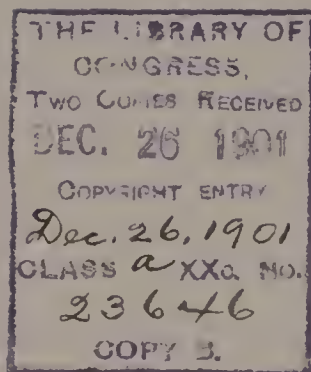 THE LIBRARY OF
CONGRESS,
TWO COPIES RECEIVED
DEC. 26 1901
COPYRIGHT ENTRY
Dec. 26, 1901
CLASS a XXc. No.
23646
COPY B.